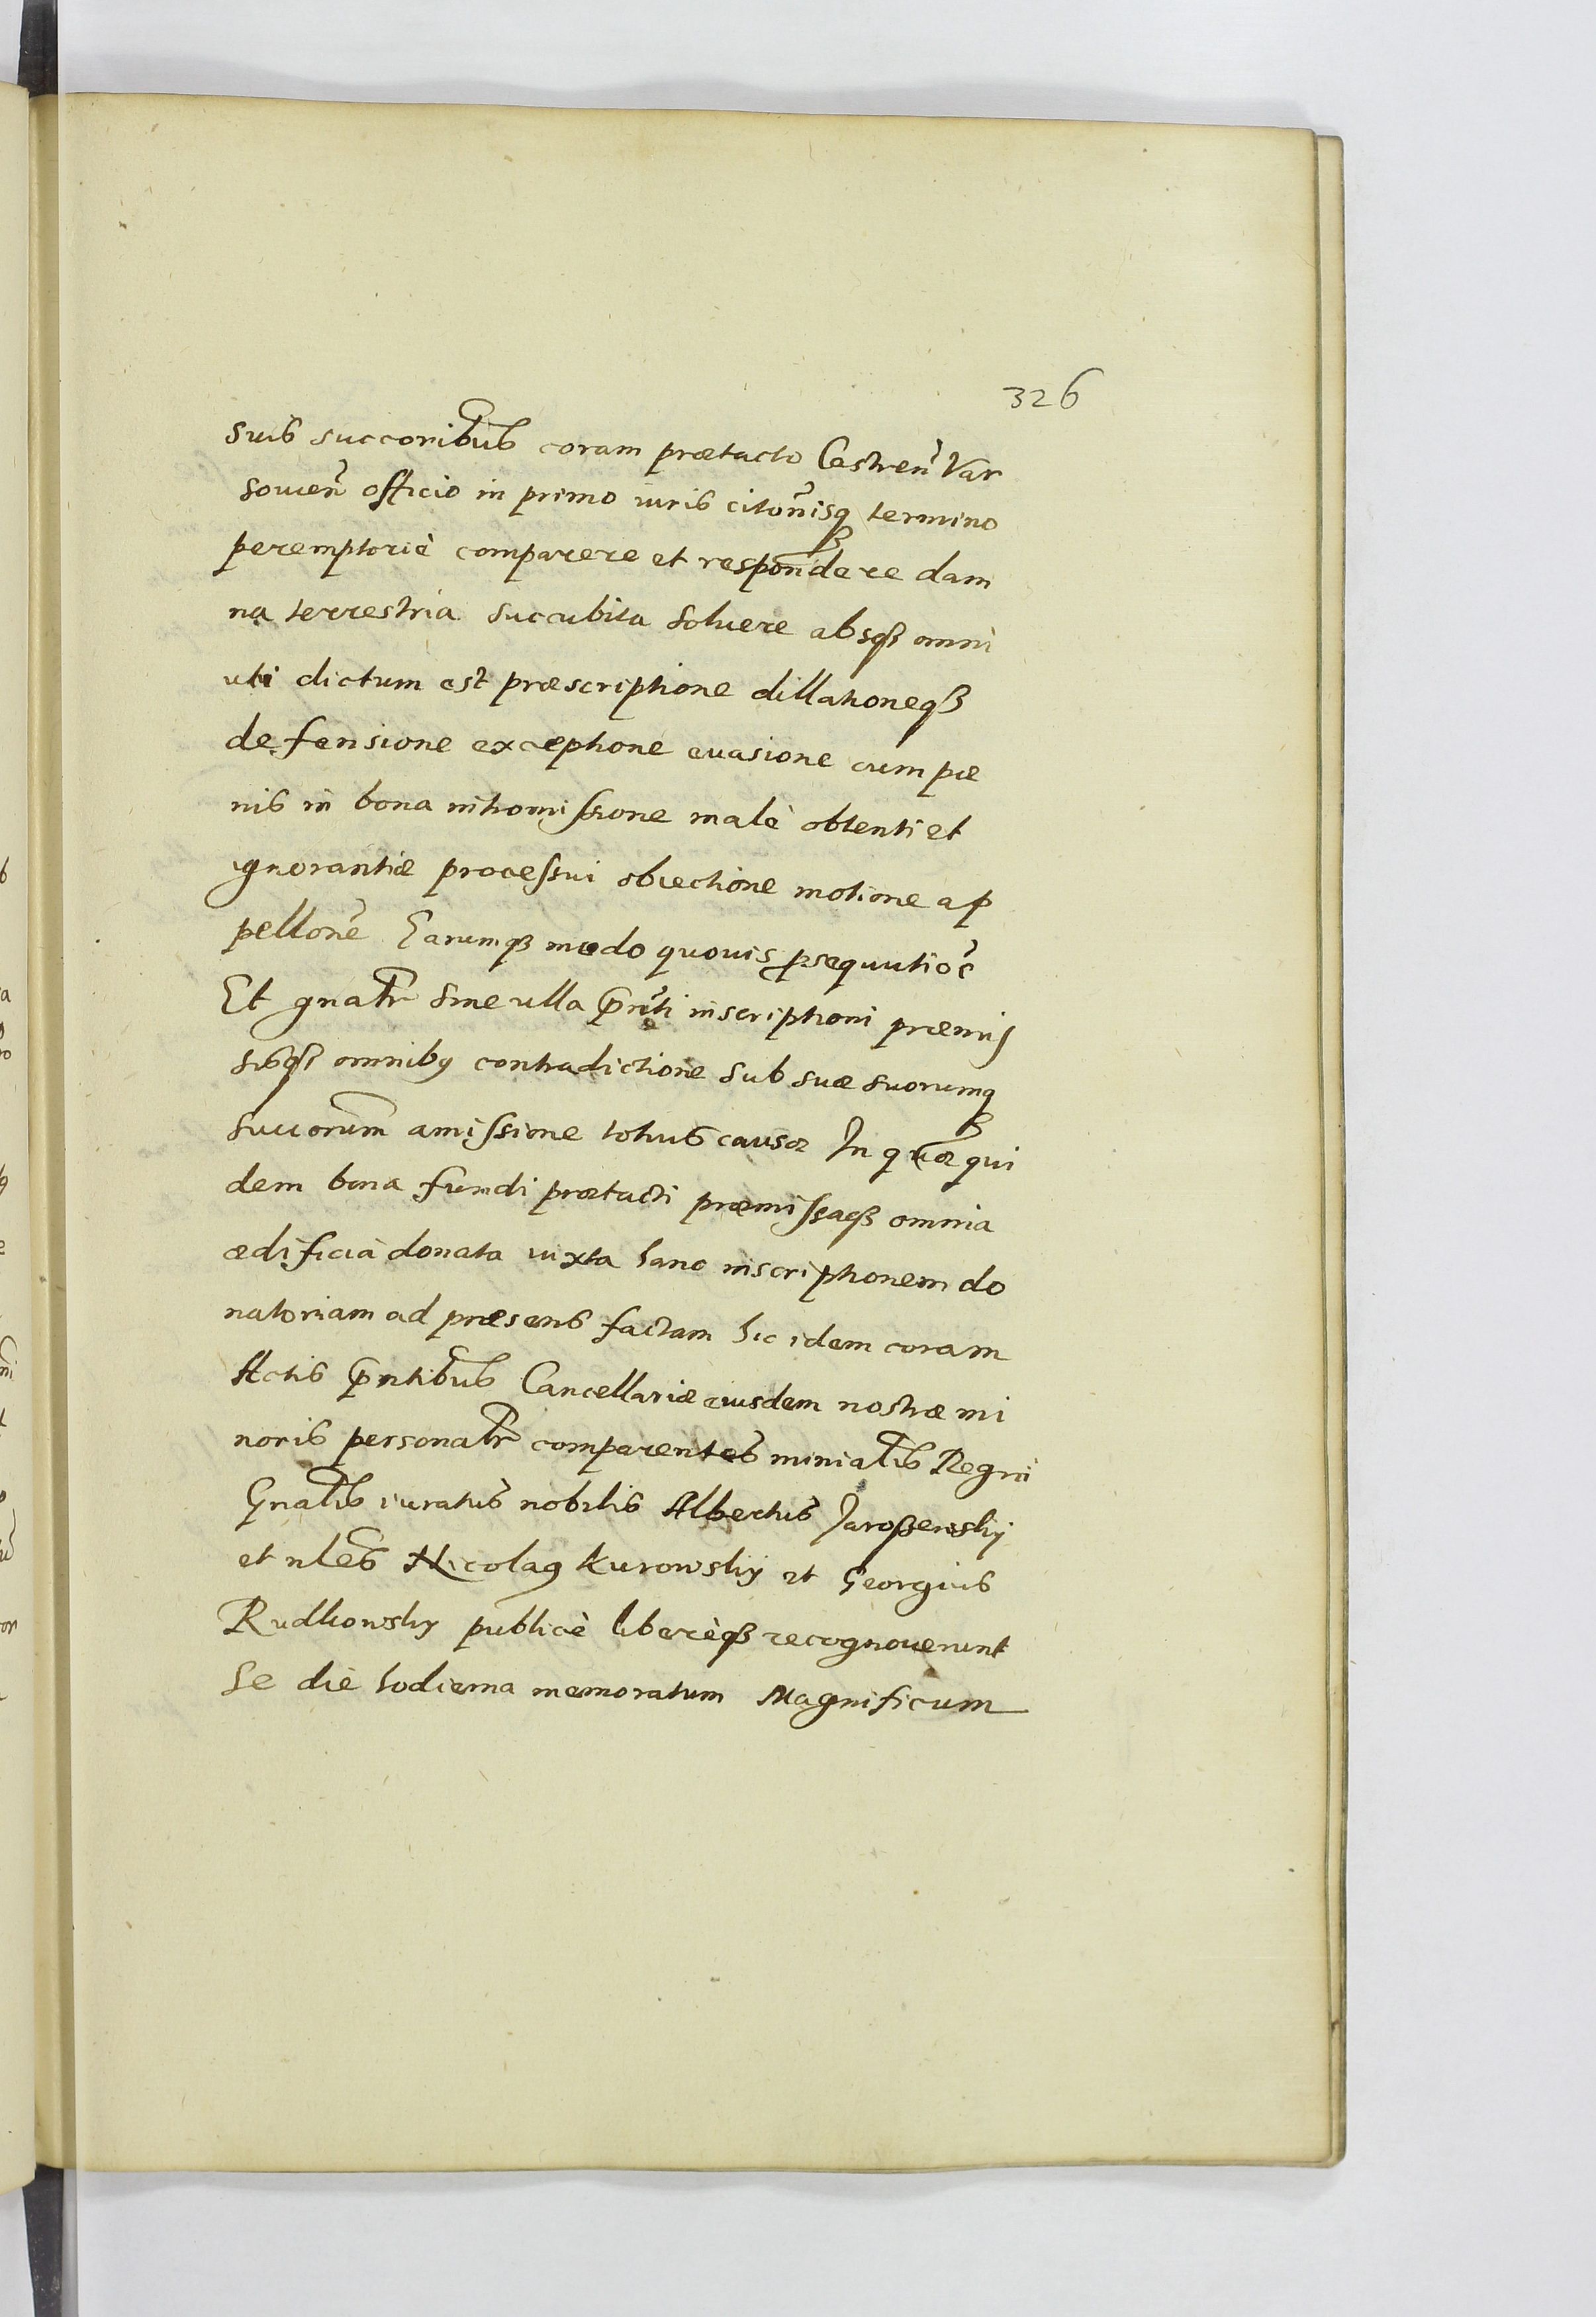 326
suis succoribus coram prætacto Castren Var
souien officio in primo iuris citonisq termino
peremptoriè comparere et respondere dam
na terrestria succubita soluere absqß omni
uti dictum est præscriptione dillationeqß
defensione exceptione euasione cum pæ
nis in bona intromissione malè obtenti et
ignorantiæ processui obiectione motione ap
pellone Earumqß modo quouis psequutioe
Et gnalr sine ulla pnti inscriptioni præmis
sisqß omnibq contradictione sub suæ suorumq
succorum amissione totius causæ In quæ qui
dem bona fundi prætacti præmissaqß omnia
ædificia donata iuxta hanc inscriptionem do
natoriam ad præsens factam hic idem coram
Actis pntibus Cancellariæ eiusdem nostræ mi
noris personalr comparentes minialis Regni
Gnalis iuratus nobilis Albertus Jaroßewskij
et nles Nicolaq Kurowskij et Georgius
Rudkowsky publicè liberèqß recognouerunt
se die hodierna memoratum Magnificum